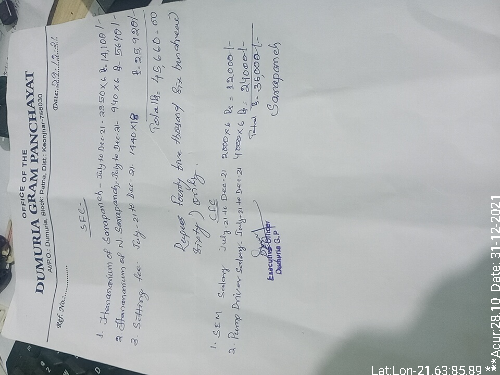 OFFICE OF THE
DUMURIA GRAM PANCHAYAT
At/P.O.- Dumuria, Block: Patna, Dist: Keonjhar-758030
Ref No.
Date: 29.12.21
SFC-
1. Honanarium of Sarapanch - July to Dec-21 - 2350 x 6 ₨ 14,100/-
2. Honanarium of N. Sarapanch, July to Dec-21 - 940 x 6 ₨. 5640/-
3 Sitting fee July-21 to Dec 21 1440 x 18 ₨ 25,920/-
Total ₨. 45,660=00
Rupees fourty five thousand six hundread
sixty) only.
CFC
1. SEM Salary July-21 to Dec-21 2000 x 6 ₨ = 12000/-
2 Pump Driver Salary July-21 to Dec-21 4000 x 6 ₨ = 24000/-
Total ₨ = 36000/-
Executive Officer
Dumuria G.P
Sarapanch
Lat Lon-21.63:85.89
**Acur:28.10 Date: 31-12-2021